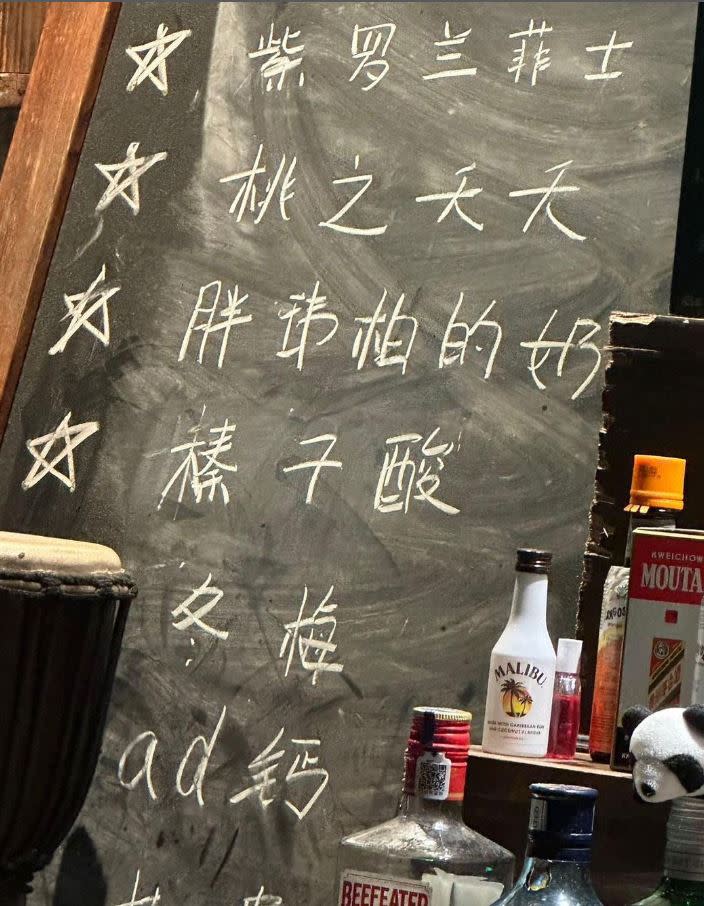 紫罗兰菲士
桃之夭夭
胖玮柏的奶
榛子酸
冬梅
ad钙
KWEICHOW
MOUTA
MALIBU
BEEFEATER